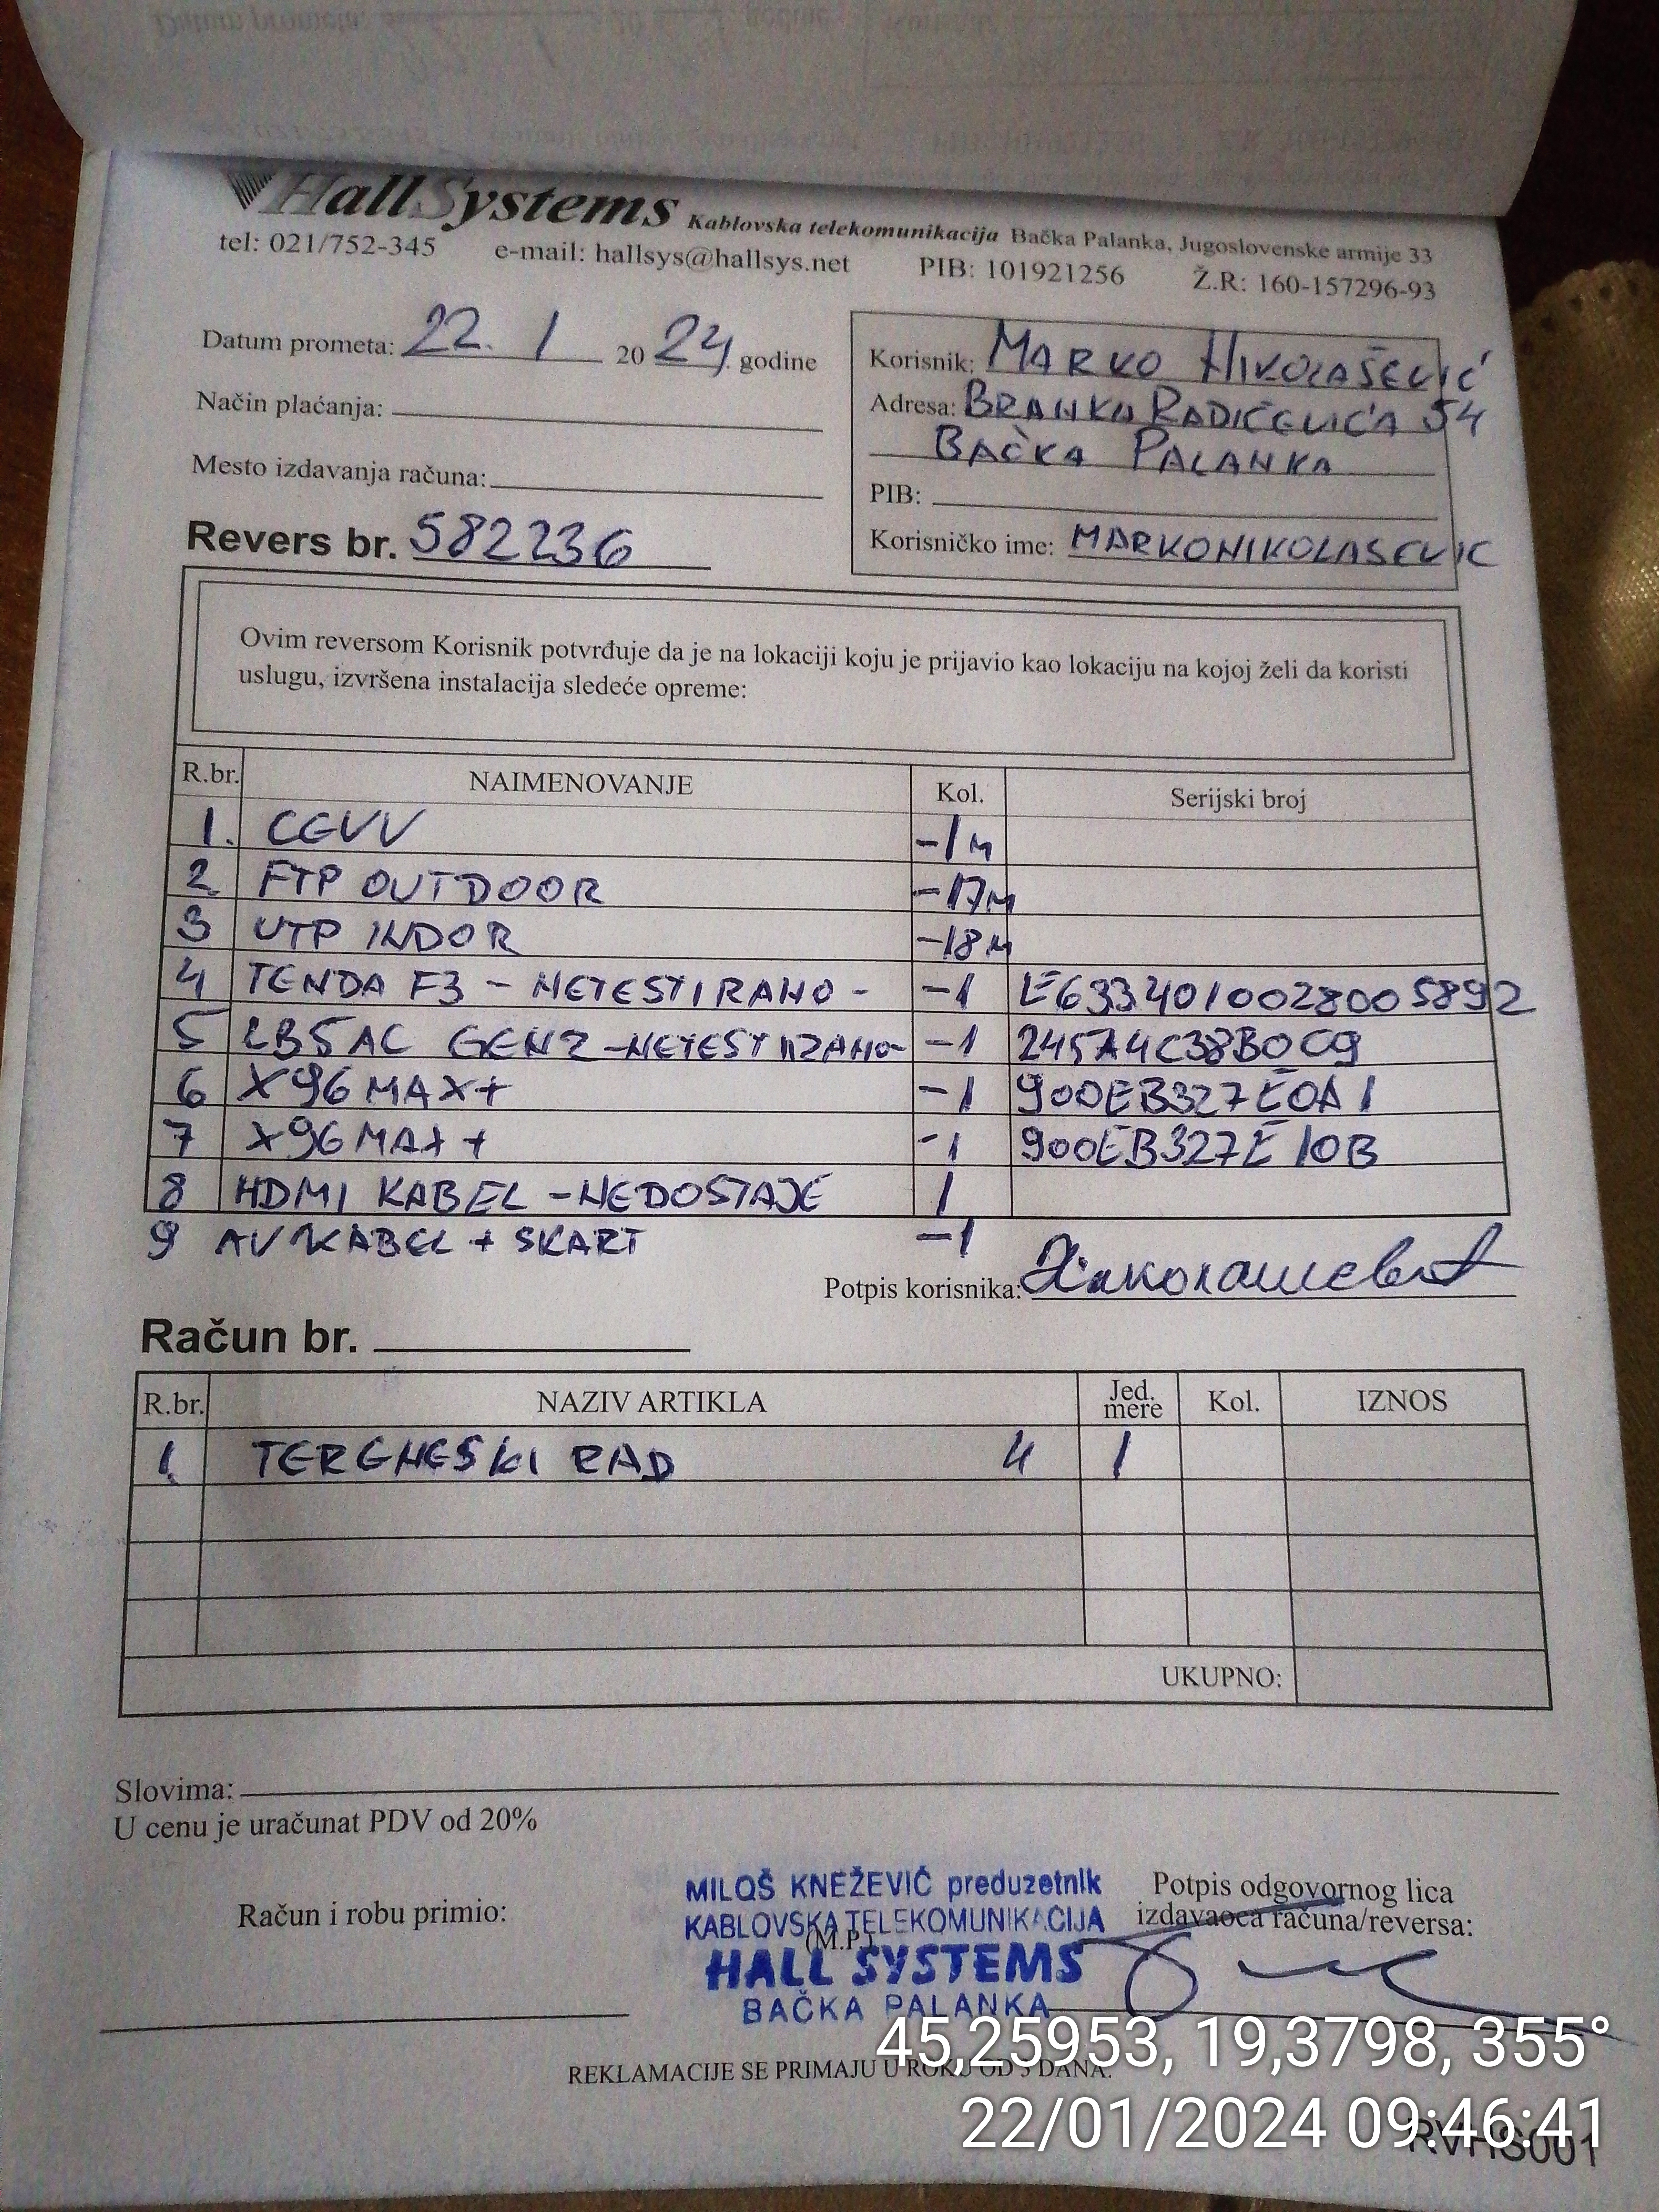 HallSystems Kablovska telekomunikacija Bačka Palanka, Jugoslovenske armije 33
tel: 021/752-345 e-mail: hallsys@hallsys.net PIB: 101921256 Ž.R: 160-157296-93
Datum prometa: 22. 1 20 24. godine
Način plaćanja:
Mesto izdavanja računa:
Revers br. 582236
Korisnik: MARKO NIKOLAŠEVIĆ
Adresa: BRANKA RADIČEVIĆA 54
BAČKA PALANKA
PIB:
Korisničko ime: MARKONIKOLASEVIC
Ovim reversom Korisnik potvrđuje da je na lokaciji koju je prijavio kao lokaciju na kojoj želi da koristi
uslugu, izvršena instalacija sledeće opreme:
R.br. NAIMENOVANJE Kol. Serijski broj
1. CGVV -1m
2 FTP OUTDOOR -17m
3 UTP INDOR -18m
4 TENDA F3 - NETESTIRANO - -1 E6334010028005892
5 LB5AC GEN2 -NETESTIRANO- -1 245A4C38B0C9
6 X96 MAX+ -1 900EB327E0A1
7 X96 MAX+ -1 900EB327E10B
8 HDMI KABEL -NEDOSTAJE 1
9 AV KABEL + SKART -1
Potpis korisnika: Николашевић
Račun br.
R.br. NAZIV ARTIKLA Jed. mere Kol. IZNOS
1. TERENESKI RAD 4 1
UKUPNO:
Slovima:
U cenu je uračunat PDV od 20%
Račun i robu primio:
MILOŠ KNEŽEVIĆ preduzetnik
KABLOVSKA TELEKOMUNIKACIJA
(M.P.)
HALL SYSTEMS
BAČKA PALANKA
Potpis odgovornog lica
izdavaoca računa/reversa:
REKLAMACIJE SE PRIMAJU U ROKU OD 3 DANA.
45,25953, 19,3798, 355°
22/01/2024 09:46:41
RVHS001